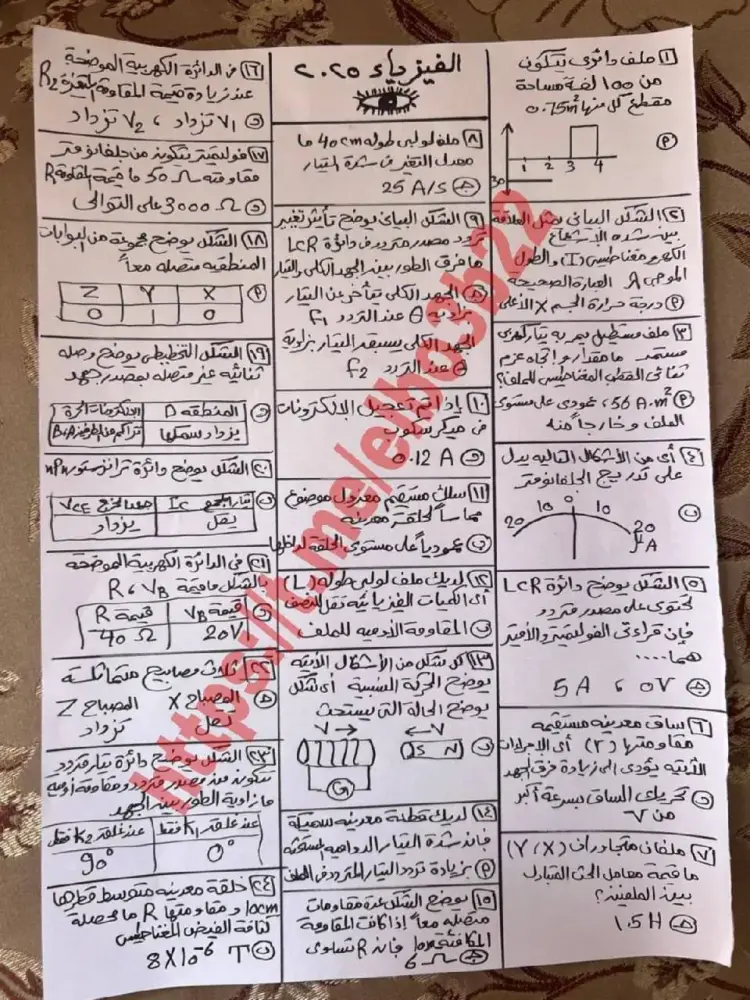 الفيزياء ٢٠٢٥
١ ملف دائرى يتكون
من ١٠٠ لفة مساحة
مقطع كل منها 0.75m²
P
1 2 3 4
30
٢ الشكل البيانى يمثل العلاقة
بين شده الإشعاع
الكهرومغناطيسى (I) والطول
الموجى λ العبارة الصحيحه
P درجة حرارة الجسم X الأعلى
٣ ملف مستطيل يمر به تيار كهربى
مستمر ما مقدار واتجاه عزم
ثنائى القطب المغناطيسى للملف؟
P 56 A.m² ، عمودى على مستوى
الملف وخارجاً منه
٤ أى من الأشكال التاليه يدل
على تدريج الجلفانومتر
20 10 0 10 20
μA
٥ الشكل يوضح دائرة LCR
تحتوى على مصدر متردد
فإن قراءتى الفولتميتر والأميتر
هما....
5A ، 0V
٦ ساق معدنيه مستقيمه
مقاومتها (٢) أى الإجراءات
الآتيه يؤدى الى زيادة فرق الجهد
تحريك الساق بسرعة أكبر
من V
٧ ملفان متجاوران (X، Y)
ما قيمة معامل الحث المتبادل
بين الملفين؟
1.5H
٨ ملف لولبى طوله 40cm ما
معدل التغير فى شدة التيار
25 A/S
٩ الشكل البيانى يوضح تأثير تغير
تردد مصدر متردد فى دائرة LCR
ما فرق الطور بين الجهد الكلى والتيار
الجهد الكلى يتأخر عن التيار
بزاوية θ عند التردد f₁
الجهد الكلى يسبق التيار بزاوية
θ عند التردد f₂
١٠ إذا تم تعجيل الإلكترونات
فى ميكرسكوب
0.12 A
١١ سلك مستقيم معزول موضوع
مماساً لحلقة معدنيه
عمودياً على مستوى الحلقة لداخلها
١٢ لديك ملف لولبى طوله (L)
أى الكميات الفيزيائيه تقل للنصف
المقاومة الأوميه للملف
١٣ كل شكل من الأشكال الآتيه
يوضح الحركة النسبية أى شكل
يوضح الحالة التى يستحث
V V
S N
G
١٤ لديك قطعة معدنيه سميكة
فإن شدة التيار الدواميه المستحثه
P بزيادة تردد التيار المتردد فى الملف
١٥ يوضح الشكل عدة مقاومات
متصله معاً إذا كانت المقاومة
المكافئة 10Ω فإن R تساوى
6 Ω
١٦ فى الدائرة الكهربية الموضحة
عند زيادة قيمة المقاومة المتغيرة R₂
V₁ تزداد ، V₂ تزداد
١٧ فولتميتر يتكون من جلفانومتر
مقاومته 50Ω ما قيمة المقاومة R
3000 Ω على التوالى
١٨ الشكل يوضح مجموعة من البوابات
المنطقيه متصله معاً
P
Z Y X
0 1 0
١٩ الشكل التخطيطى يوضح وصله
ثنائية غير متصله بمصدر جهد
المنطقه D
يزداد سمكها
٢٠ الشكل يوضح دائرة ترانزستور npn
تيار المجمع IC جهد الخرج VCE
يقل يزداد
٢١ فى الدائرة الكهربية الموضحه
بالشكل ما قيمة R ، VB
قيمة R قيمة VB
40Ω 20V
٢٢ ثلاث مصابيح متماثلة
المصباح X المصباح Z
تقل تزداد
٢٣ الشكل يوضح دائرة تيار متردد
تتكون من مصدر متردد ومقاومة أوميه
ما زاوية الطور بين الجهد
عند غلق K₁ فقط عند غلق K₂ فقط
0° 90°
٢٤ حلقة معدنيه متوسط قطرها
10cm ومقاومتها R ما محصلة
كثافة الفيض المغناطيسى
8X10⁻⁶ T
https://t.me/elbo3b22